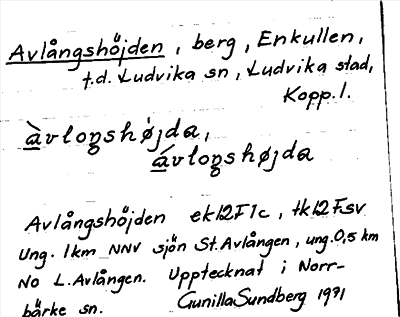 Avlångshöjden, berg, Enkullen,
t.d. Ludvika sn, Ludvika stad,
Kopp. l.
àvlongshøjda,
ávlongshøjda
Avlångshöjden ek12F1c, tk12Fsv
Ung. 1km NNV sjön St. Avlången, ung. 0,5 km
NO L. Avlången. Upptecknat i Norr-
bärke sn. Gunilla Sundberg 1991